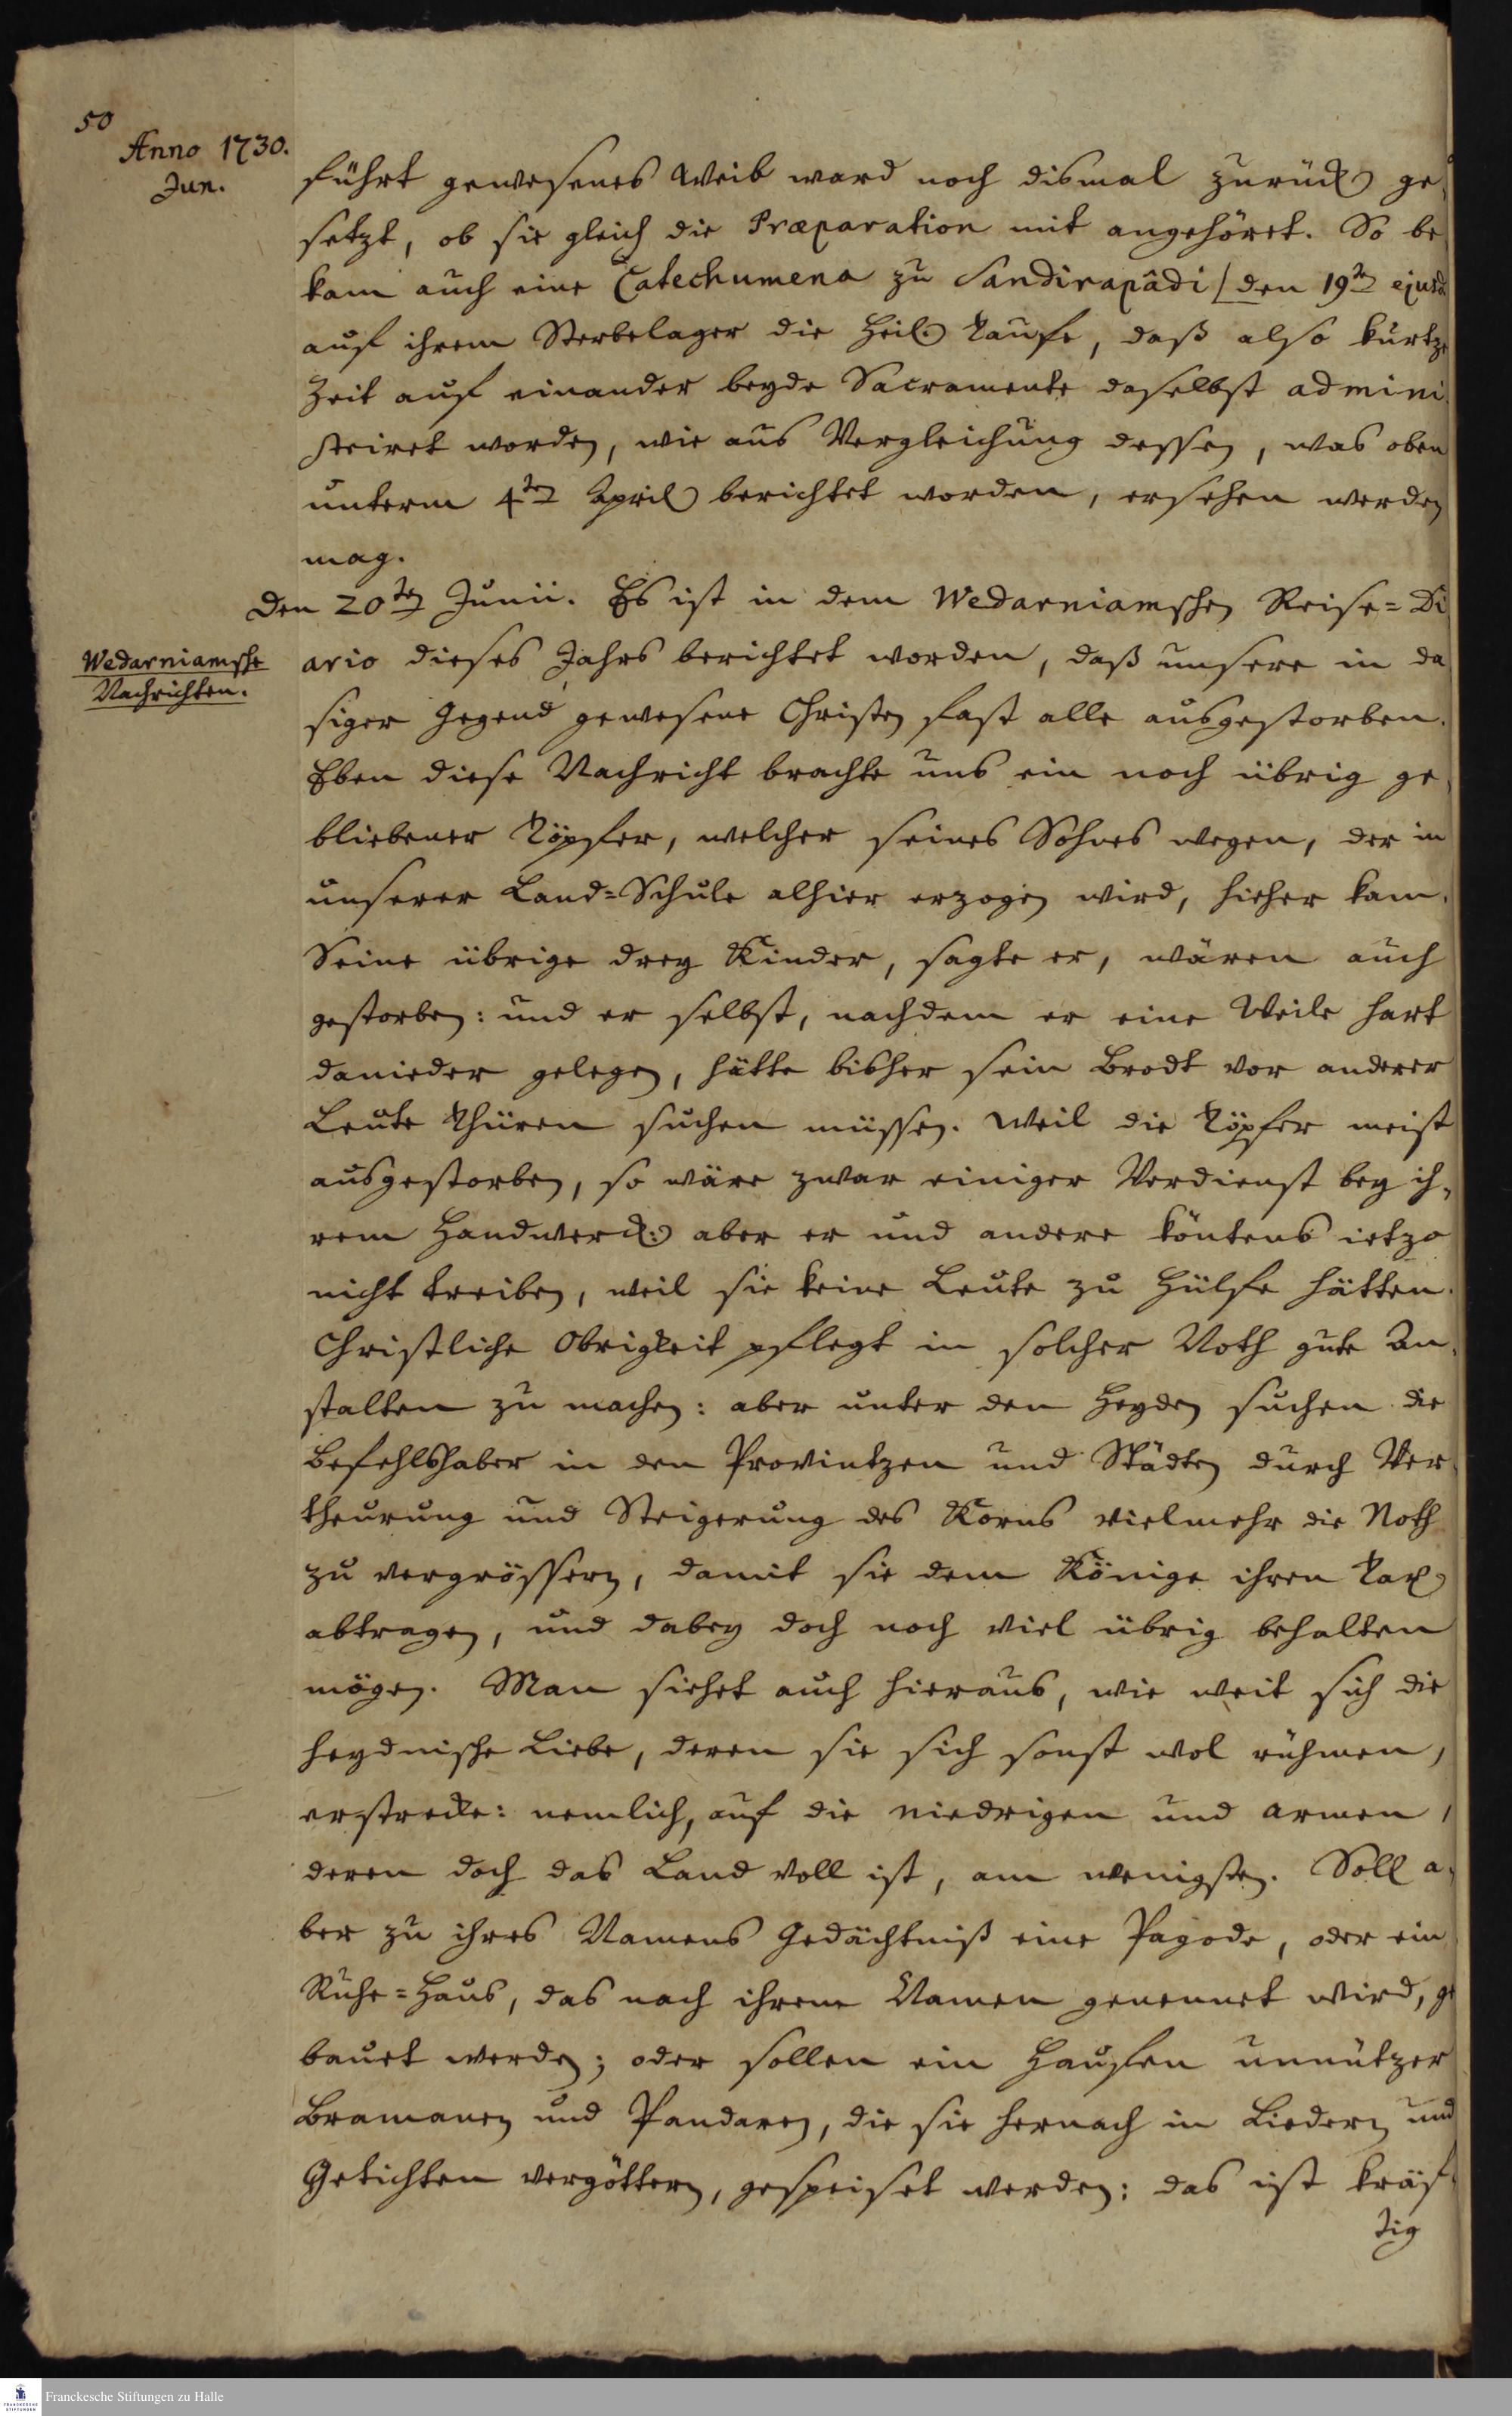 50
Anno 1730.
Jun.
führt gewesenes Weib ward noch dismal zurück ge-
setzt, ob sie gleich die Præparation mit angehöret. So be
kam auch eine Catechumena zu Sandirapâdi /den 19ten ejusd
auf ihrem Sterbelager die heil. Taufe, daß also kurtze
Zeit auf einander beyde Sacramente daselbst admini-
striret worden, wie aus Vergleichung dessen, was oben
unterm 4ten April berichtet worden, ersehen werden
mag.
Den 20ten Junii. Es ist in dem Wedarniamschen Reise=Di
Wedarniamsche
Nachrichten.
ario dieses Jahrs berichtet worden, daß unsere in da
siger Gegend gewesene Christen fast alle ausgestorben.
Eben diese Nachricht brachte uns ein noch übrig ge-
bliebener Töpfer, welcher seines Sohnes wegen, der in
unserer Land=Schule alhier erzogen wird, hieher kam.
Seine übrige drey Kinder, sagte er, wären auch
gestorben: und er selbst, nachdem er eine Weile hart
danieder gelegen, hätte bisher sein Brodt vor anderer
Leute Thüren suchen müssen. Weil die Töpfer meist
ausgestorben, so wäre zwar einiger Verdienst bey ih-
rem Handwerck: aber er und andere köntens ietzo
nicht treiben, weil sie keine Leute zu Hülfe hätten.
Christliche Obrigkeit pflegt in solcher Noth gute An-
stalten zu machen: aber unter den Heyden suchen die
Befehlshaber in den Provintzen und Städten durch Ver-
theurung und Steigerung des Korns vielmehr die Noth
zu vergrössern, damit sie dem Könige ihren Tax
abtragen, und dabey doch noch viel übrig behalten
mögen. Man siehet auch hieraus, wie weit sich die
heydnische Liebe, deren sie sich sonst wol rühmen,
erstrecke: nemlich, auf die niedrigen und armen,
deren doch das Land voll ist, am wenigsten. Soll a-
ber zu ihres Namens Gedächtniß eine Pagode, oder ein
Ruhe=Haus, das nach ihrem Namen genennet wird, ge
bauet werden; oder sollen ein Haufen unnützer
Bramanen und Pandaren, die sie hernach in Liedern und
Getichten vergöttern, gespeiset werden: das ist kräf-
tig
Franckesche Stiftungen zu Halle